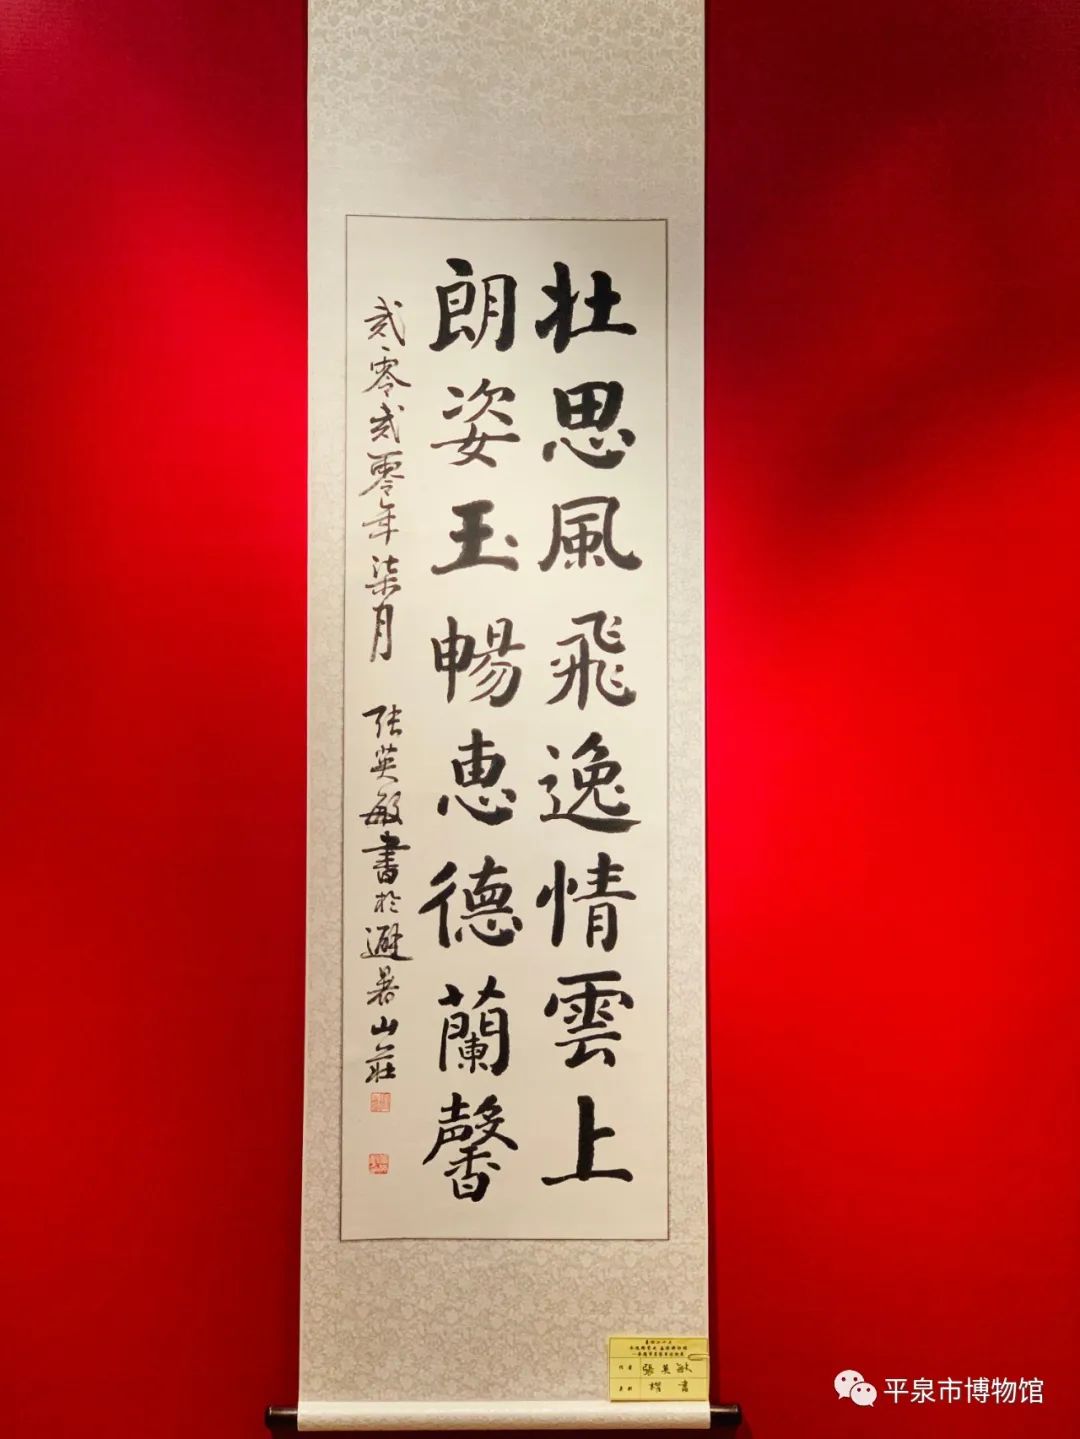 壮思風飛逸情雲上
朗姿玉暢恵德蘭馨
贰零贰零年柒月 张英敏書於避暑山莊
作者 張英敏
楷書
平泉市博物馆